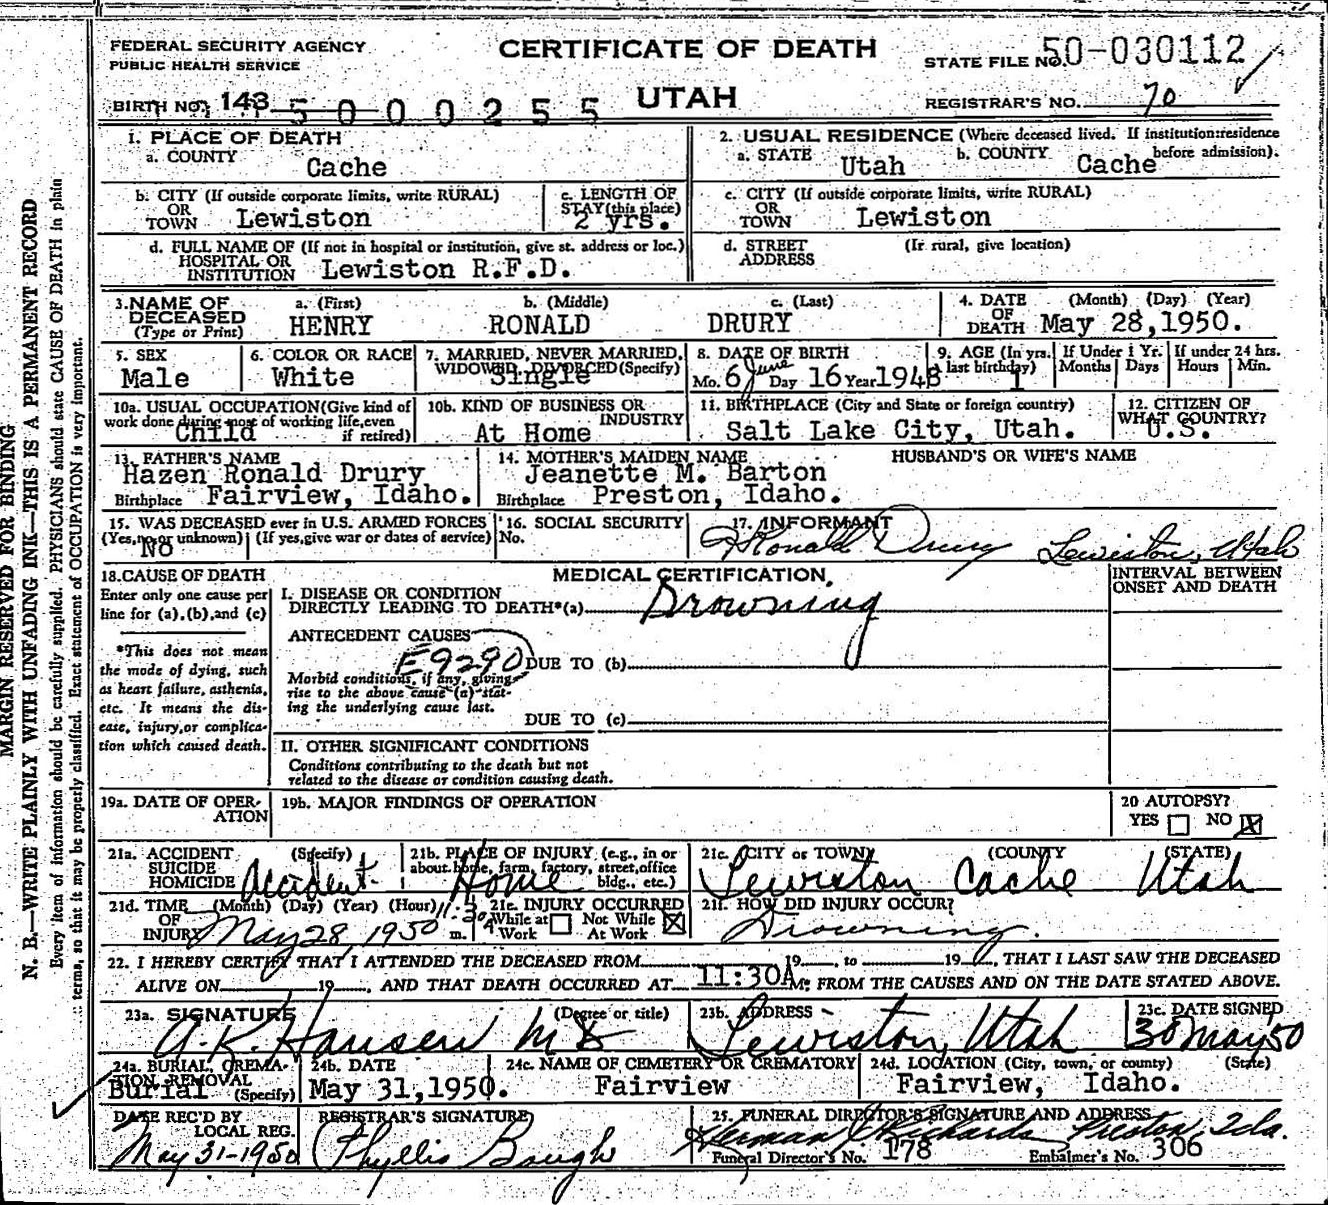 FEDERAL SECURITY AGENCY
PUBLIC HEALTH SERVICE
CERTIFICATE OF DEATH
UTAH
STATE FILE NO. 50-030112
BIRTH NO. 143 5 0 0 0 2 5 5
REGISTRAR'S NO. 70
1. PLACE OF DEATH
a. COUNTY Cache
2. USUAL RESIDENCE (Where deceased lived. If institution:residence before admission).
a. STATE Utah b. COUNTY Cache
b. CITY (If outside corporate limits, write RURAL)
OR TOWN Lewiston
c. LENGTH OF STAY (this place) 2 yrs.
c. CITY (If outside corporate limits, write RURAL)
OR TOWN Lewiston
d. FULL NAME OF (If not in hospital or institution, give st. address or loc.)
HOSPITAL OR INSTITUTION Lewiston R.F.D.
d. STREET ADDRESS (If rural, give location)
3. NAME OF DECEASED (Type or Print)
a. (First) b. (Middle) c. (Last)
HENRY RONALD DRURY
4. DATE OF DEATH (Month) (Day) (Year)
May 28,1950.
5. SEX Male
6. COLOR OR RACE White
7. MARRIED, NEVER MARRIED, WIDOWED, DIVORCED (Specify) Single
8. DATE OF BIRTH
Mo. 6 June Day 16 Year 1948
9. AGE (In yrs. last birthday) 1
If Under 1 Yr. Months Days
If under 24 hrs. Hours Min.
10a. USUAL OCCUPATION (Give kind of work done during most of working life, even if retired) Child
10b. KIND OF BUSINESS OR INDUSTRY At Home
11. BIRTHPLACE (City and State or foreign country)
Salt Lake City, Utah.
12. CITIZEN OF WHAT COUNTRY? U.S.
13. FATHER'S NAME
Hazen Ronald Drury
Birthplace Fairview, Idaho.
14. MOTHER'S MAIDEN NAME
Jeanette M. Barton
Birthplace Preston, Idaho.
HUSBAND'S OR WIFE'S NAME
15. WAS DECEASED ever in U.S. ARMED FORCES
(Yes, no or unknown) (If yes, give war or dates of service)
No
16. SOCIAL SECURITY No.
17. INFORMANT
H Ronald Drury Lewiston, Utah
18. CAUSE OF DEATH
Enter only one cause per line for (a), (b), and (c)
*This does not mean the mode of dying, such as heart failure, asthenia, etc. It means the disease, injury, or complication which caused death.
MEDICAL CERTIFICATION
INTERVAL BETWEEN ONSET AND DEATH
I. DISEASE OR CONDITION
DIRECTLY LEADING TO DEATH*(a) Drowning
ANTECEDENT CAUSES
E9290 DUE TO (b)
Morbid conditions, if any, giving rise to the above cause (a) stating the underlying cause last.
DUE TO (c)
II. OTHER SIGNIFICANT CONDITIONS
Conditions contributing to the death but not
related to the disease or condition causing death.
19a. DATE OF OPERATION
19b. MAJOR FINDINGS OF OPERATION
20 AUTOPSY?
YES NO X
21a. ACCIDENT SUICIDE HOMICIDE (Specify) Accident
21b. PLACE OF INJURY (e.g., in or about home, farm, factory, street, office bldg., etc.) Home
21c. (CITY or TOWN) (COUNTY) (STATE)
Lewiston Cache Utah
21d. TIME OF INJURY (Month) (Day) (Year) (Hour)
May 28, 1950 11:30 A m.
21e. INJURY OCCURRED
While at Work Not While At Work X
21f. HOW DID INJURY OCCUR?
Drowning.
22. I HEREBY CERTIFY THAT I ATTENDED THE DECEASED FROM 19 , to 19 , THAT I LAST SAW THE DECEASED
ALIVE ON 19 , AND THAT DEATH OCCURRED AT 11:30A M; FROM THE CAUSES AND ON THE DATE STATED ABOVE.
23a. SIGNATURE (Degree or title)
A.K. Hansen MD
23b. ADDRESS
Lewiston, Utah
23c. DATE SIGNED
30 May 50
24a. BURIAL, CREMATION, REMOVAL (Specify) Burial
24b. DATE
May 31,1950.
24c. NAME OF CEMETERY OR CREMATORY
Fairview
24d. LOCATION (City, town, or county) (State)
Fairview, Idaho.
DATE REC'D BY LOCAL REG.
May 31-1950
REGISTRAR'S SIGNATURE
Phyllis Bough
25. FUNERAL DIRECTOR'S SIGNATURE AND ADDRESS
Herman Richards Preston, Ida.
Funeral Director's No. 178 Embalmer's No. 306
MARGIN RESERVED FOR BINDING
N. B.—WRITE PLAINLY WITH UNFADING INK—THIS IS A PERMANENT RECORD
Every item of information should be carefully supplied. PHYSICIANS should state CAUSE OF DEATH in plain
terms, so that it may be properly classified. Exact statement of OCCUPATION is very important.